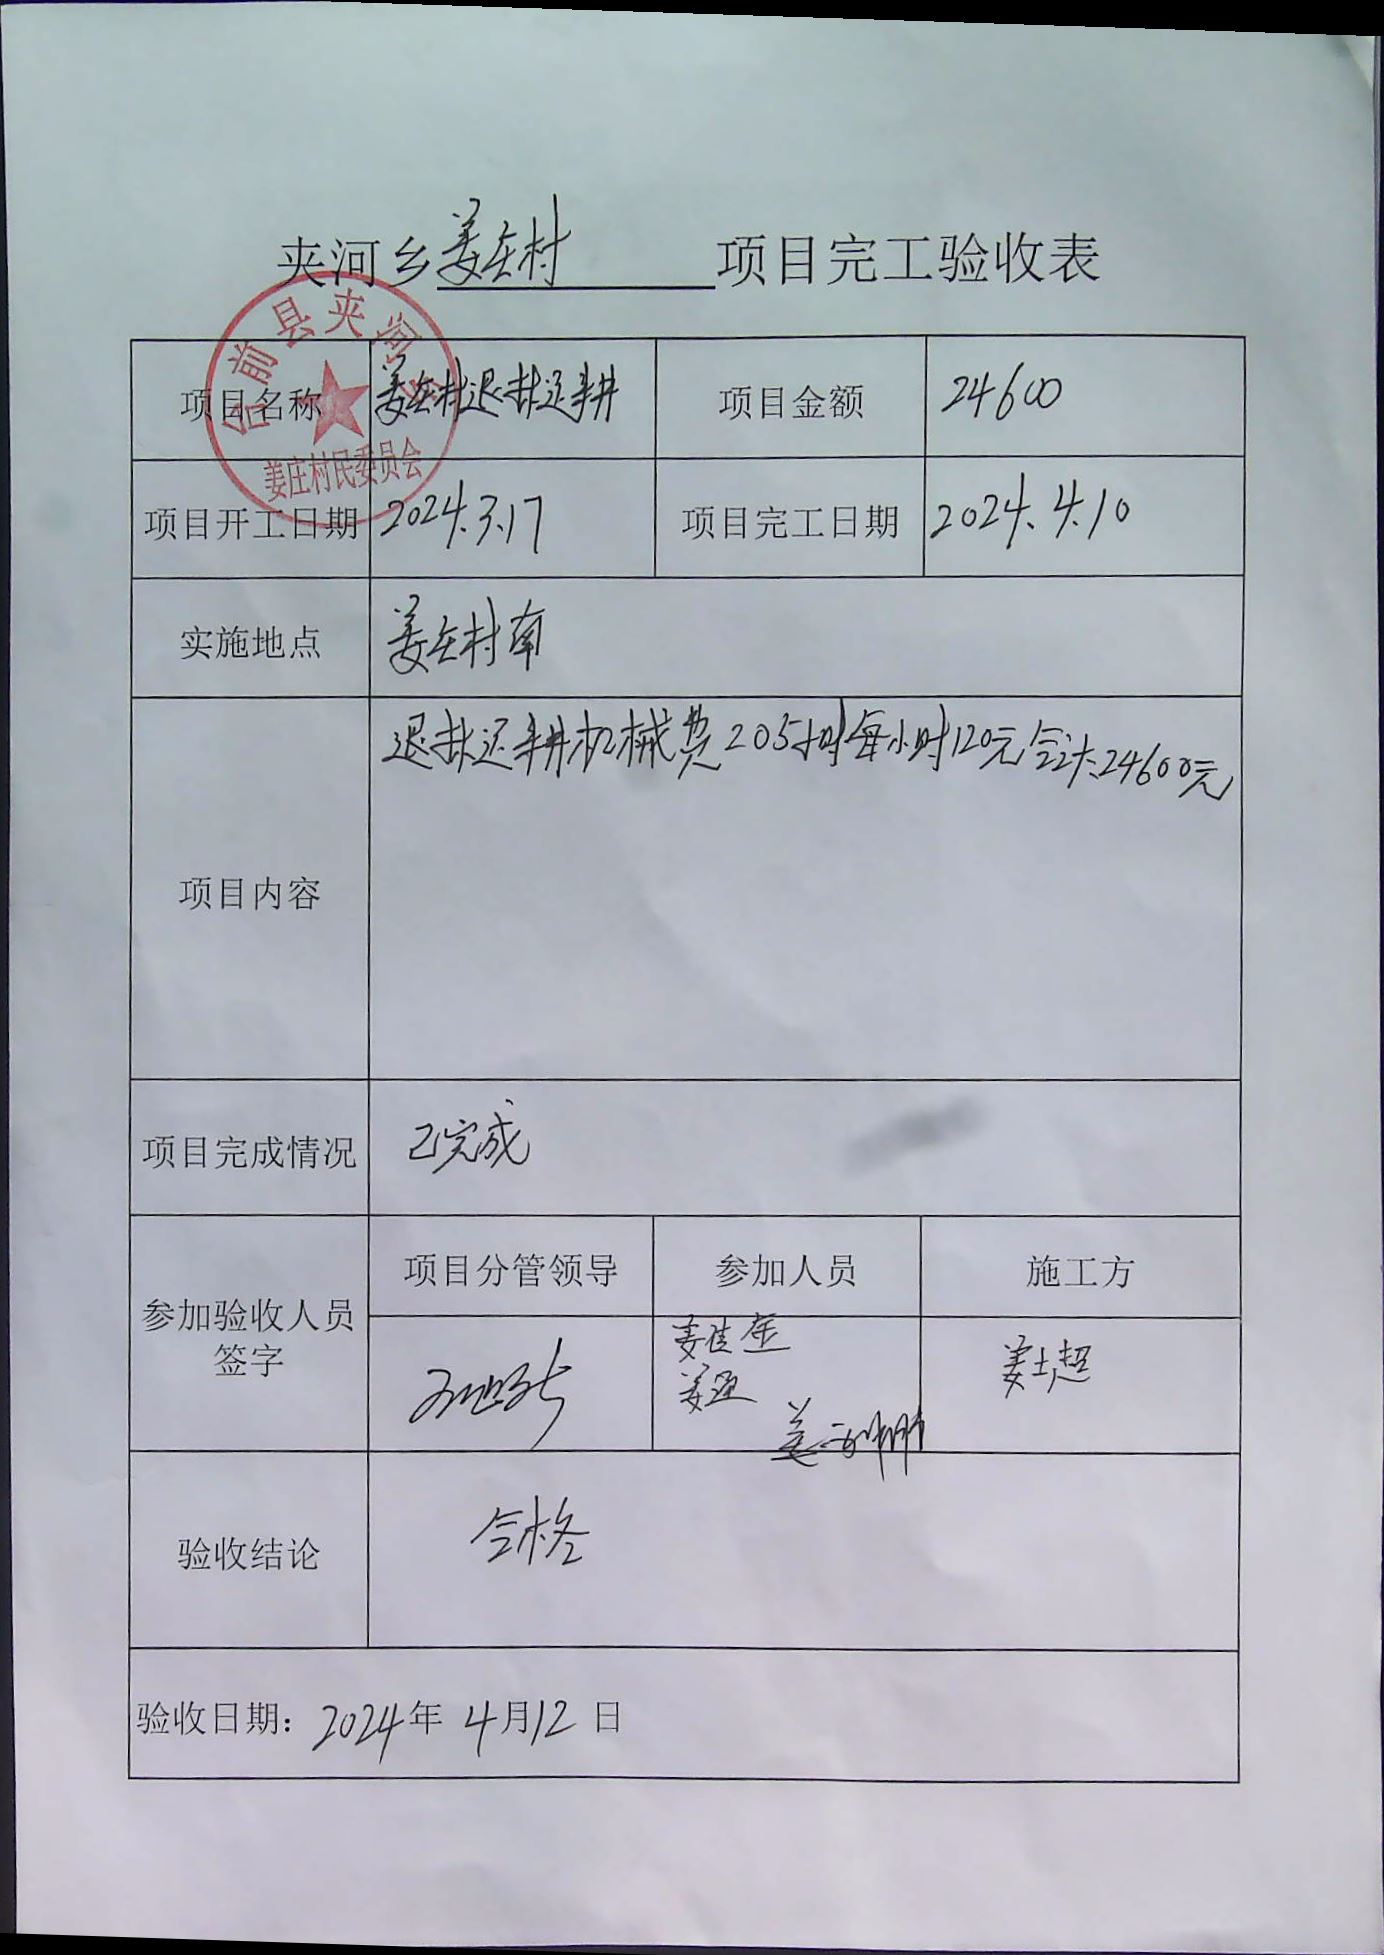 夹河乡姜庄村项目完工验收表
台前县夹河
姜庄村民委员会
项目名称 姜庄村退林还耕 项目金额 24600
项目开工日期 2024.3.17 项目完工日期 2024.4.10
实施地点 姜庄村南
项目内容 退林还耕机械费205小时每小时120元合计:24600元
项目完成情况 已完成
参加验收人员
签字
项目分管领导 参加人员 施工方
姜 姜士超
姜
姜
验收结论 合格
验收日期：2024年4月12日